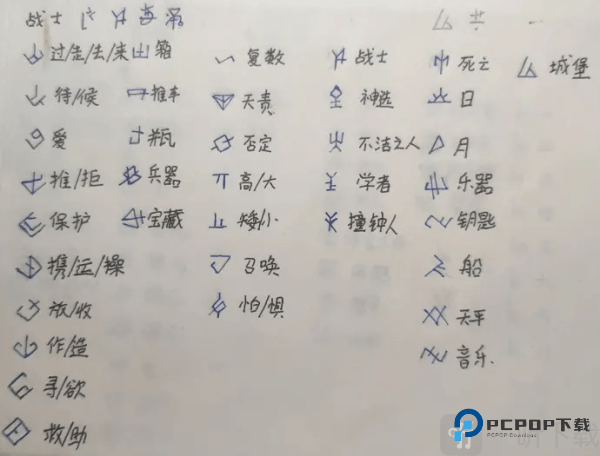 战士
过/走/去/来 箱 复数 战士 死亡 城堡
待/候 推车 天责 神选 日
爱 瓶 否定 不洁之人 月
推/拒 兵器 高/大 学者 乐器
保护 宝藏 矮/小 撞钟人 钥匙
携/运/操 召唤 船
放/收 怕/惧 天平
作/造 音乐
寻/欲
救/助
PCPOP下载
PCPOP Download